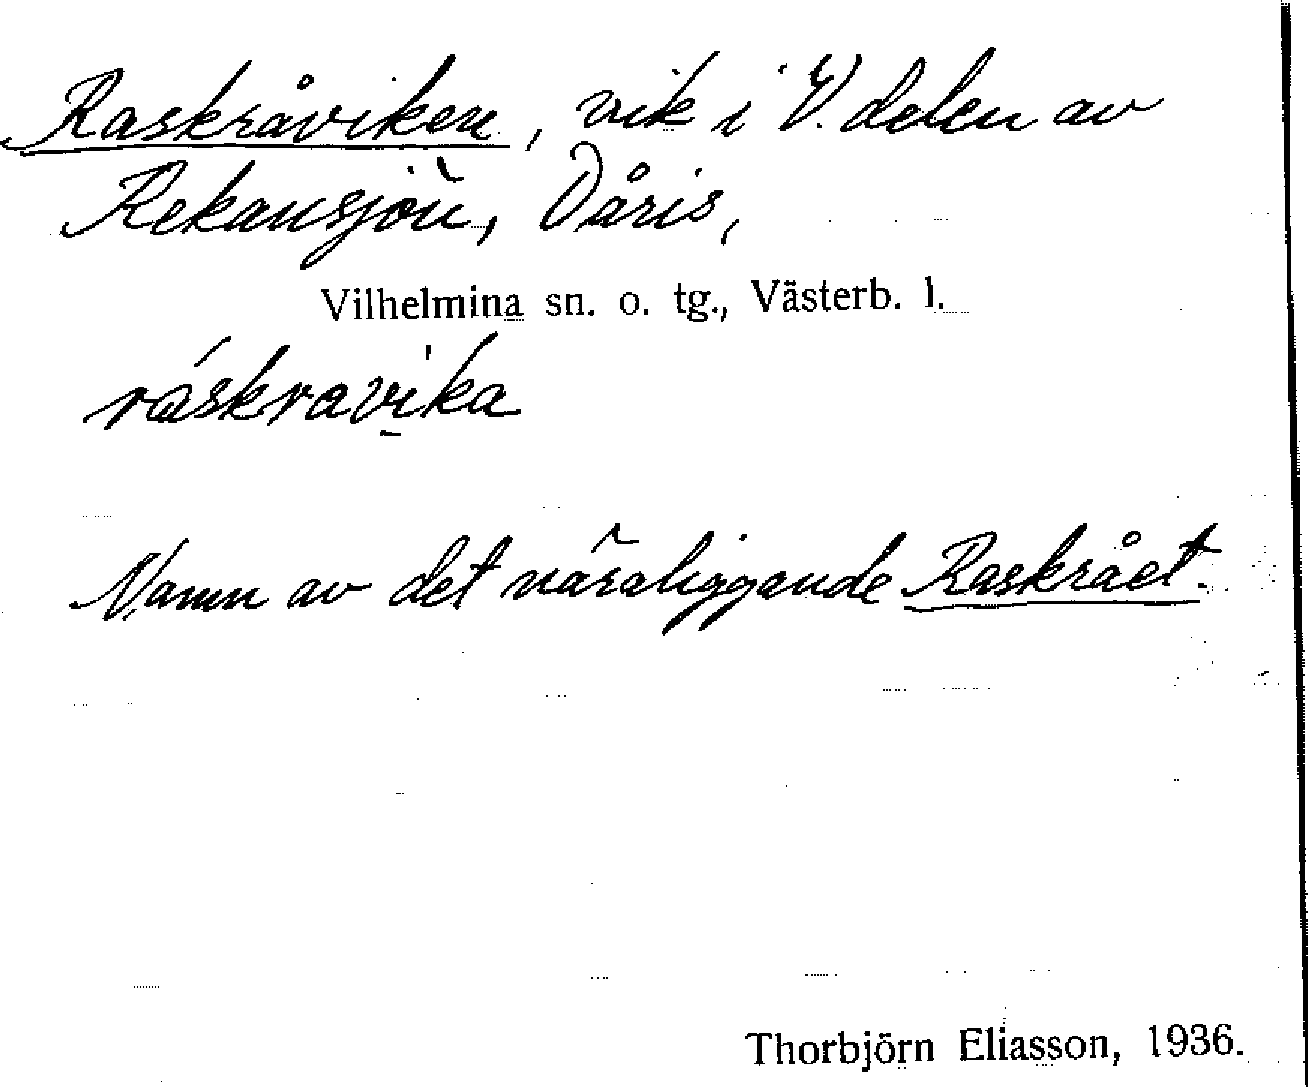 Raskråviken, vik i V. delen av
Rekansjön, Dåris,
Vilhelmina sn. o. tg., Västerb. l.
ráskravika
Namn av det näraliggande Raskrået.
Thorbjörn Eliasson, 1936.